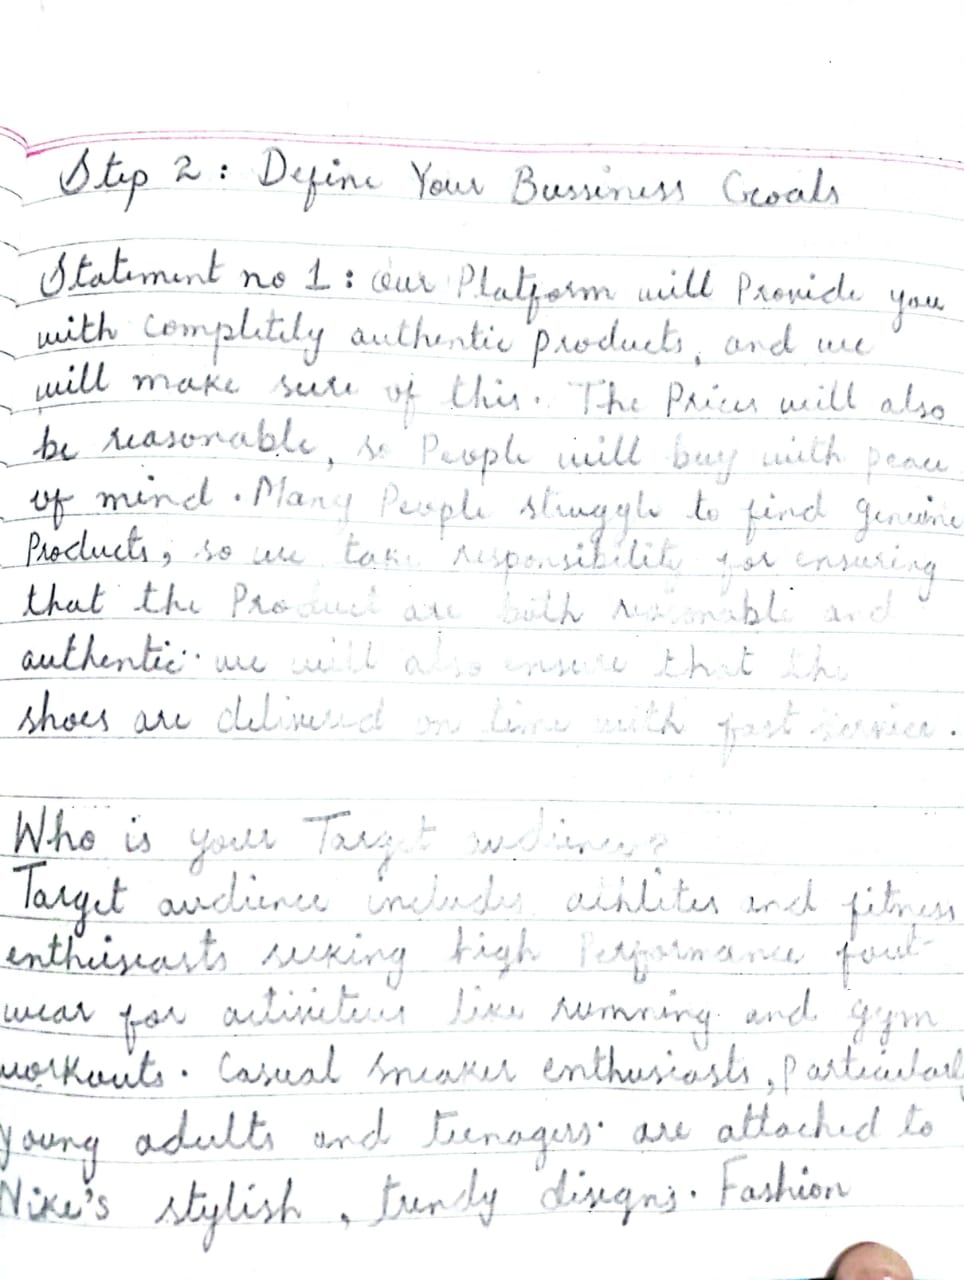 Step 2 : Define Your Bussiness Goals
Statement no 1 : Our Platform will Provide you
with completly authentic products, and we
will make sure of this. The Prices will also
be reasonable, so People will buy with peace
of mind. Many People struggle to find genuine
Products, so we take responsibility for ensuring
that the Product are both reasonable and
authentic. we will also ensure that the
shoes are delivered on time with fast service.
Who is your Target audience?
Target audience includes athletes and fitness
enthusiasts seeking high Performance foot-
wear for activities like running and gym
workouts. Casual sneaker enthusiasts, particularly
young adults and teenagers. are attached to
Nike's stylish, trendy disigns. Fashion